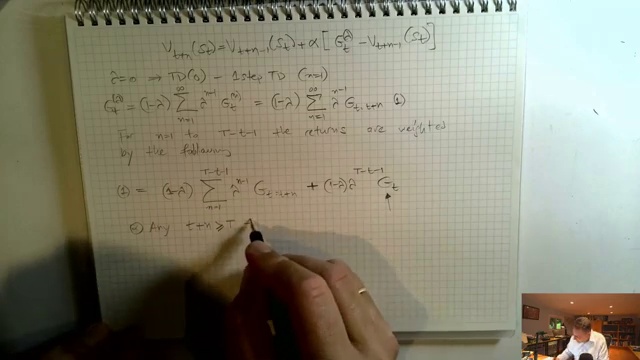 V_{t+n}(S_t) = V_{t+n-1}(S_t) + α[G_t^{(λ)} - V_{t+n-1}(S_t)]
λ=0 ⇒ TD(0) - 1step TD (n=1)
G_t^{(λ)} = (1-λ) ∑_{n=1}^{∞} λ^{n-1} G_t^{(n)} = (1-λ) ∑_{n=1}^{∞} λ^{n-1} G_{t:t+n} (1)
For n=1 to T-t-1 the returns are weighted
by the following
(1) = (1-λ) ∑_{n=1}^{T-t-1} λ^{n-1} G_{t:t+n} + (1-λ) λ^{T-t-1} G_t
Any t+n ≥ T